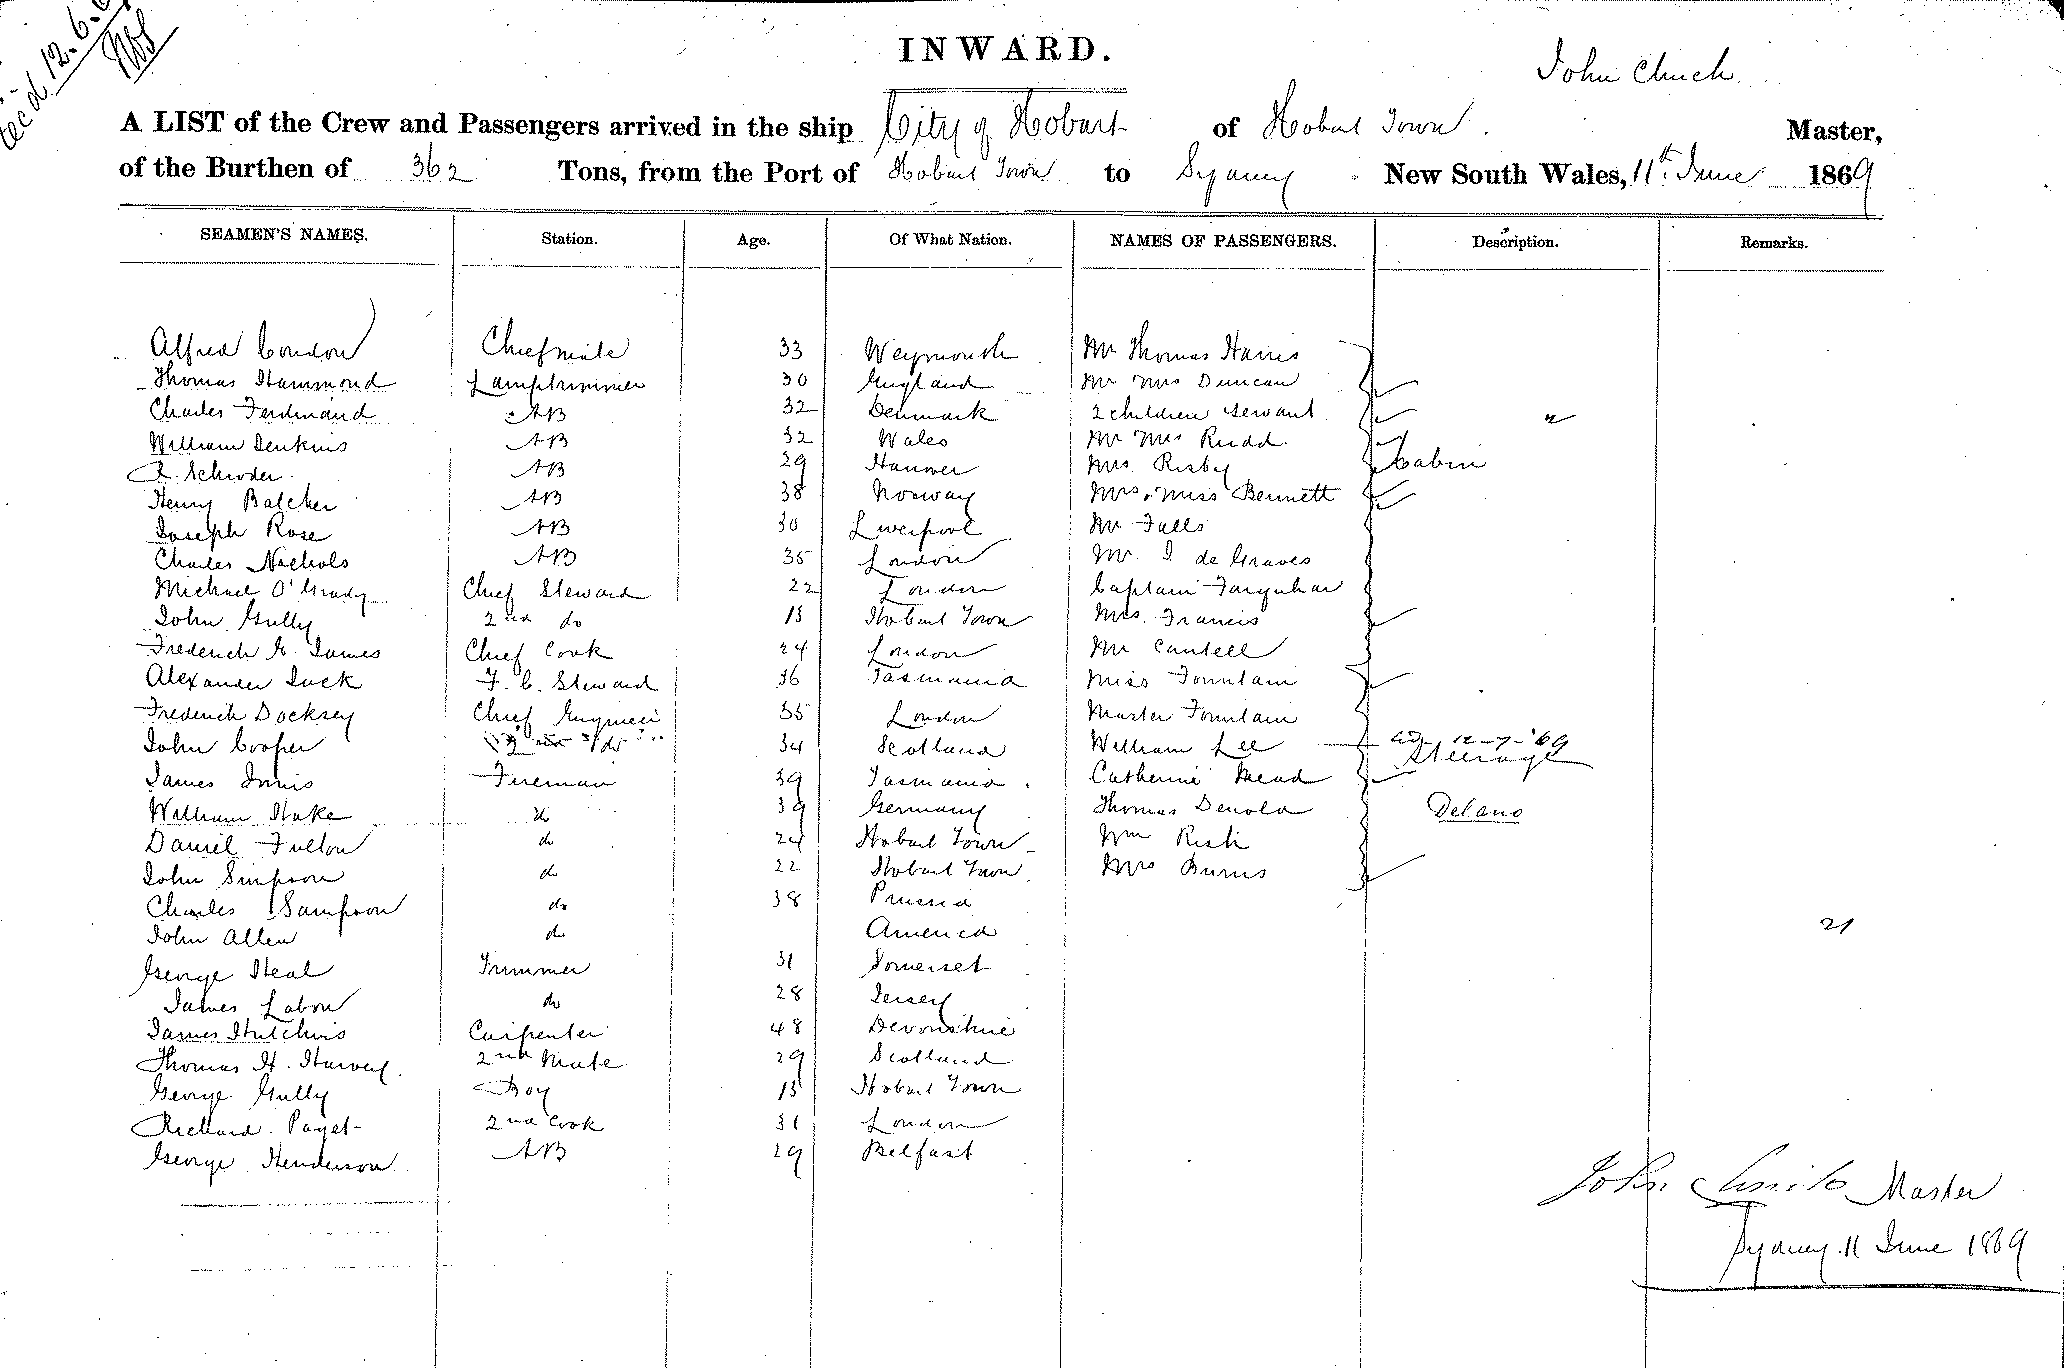 12.6.
INWARD.
John Clinch
A LIST of the Crew and Passengers arrived in the ship City of Hobart of Hobart Town Master,
of the Burthen of 362 Tons, from the Port of Hobart Town to Sydney New South Wales, 11th June 1869
SEAMEN'S NAMES. Station. Age. Of What Nation. NAMES OF PASSENGERS. Description. Remarks.
Alfred Condon Chief mate 33 Weymouth Mr Thomas Harris
Thomas Hammond Lamptrimmer 30 England Mr Mrs Duncan
Charles Ferdinand AB 32 Denmark 2 children servant "
William Jenkins AB 32 Wales Mr Mrs Rudd
Schroder AB 29 Hanover Mrs. Risby Cabin
Henry Balcher AB 38 Norway Mrs. Miss Bennett
Joseph Rose AB 30 Liverpool Mr Falls
Charles Nichols AB 35 London Mr. J. de Graves
Michael O'Grady Chief Steward 22 London Captain Farquhar
John Gully 2nd do Hobart Town Mrs. Francis
Frederick G. James Chief Cook 24 London Mr Cantell
Alexander Luck F. C. Steward 36 Tasmania Miss Fountain
Frederick Docksey Chief Engineer 35 London Master Fountain
John Cooper 2nd do 34 Scotland William Lee 12-7-'69
Steerage
James Innis Fireman 39 Tasmania Catherine Mead
William Hake do 39 Germany Thomas Denola Delano
Daniel Fulton do 24 Hobart Town Wm Rish
John Simpson do 22 Hobart Town Mrs Burns
Charles Sampson do 38 Prussia
John Allen do America 21
George Heal Trimmer 31 Somerset
James Labon do 28 Jersey
James Hutchins Carpenter 48 Devonshire
Thomas H. Harvey 2nd Mate 29 Scotland
George Gully Boy Hobart Town
Richard Paget 2nd Cook 31 London
George Henderson AB 29 Belfast
John Clinch Master
Sydney 11 June 1869